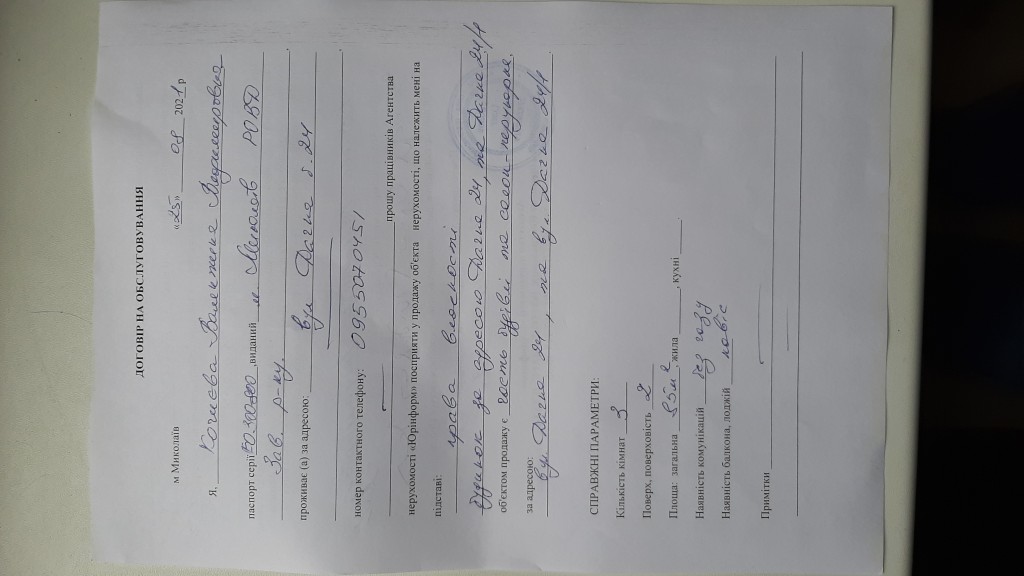 ДОГОВІР НА ОБСЛУГОВУВАННЯ
м Миколаїв «25» 08 2021р
Я, Валентина
паспорт серії ,виданий м Миколаїв РОВД
Зав. р-ну.
проживає (а) за адресою: вул Дачна б. 24
номер контактного телефону: 0955070451
прошу працівників Агентства
нерухомості «Юрінформ» посприяти у продажу об'єкта нерухомості, що належить мені на
підставі: права власності
будинок за адресою Дачна 24, та Дачна 24/1
об'єктом продажу є часть будівлі та салон-перукарня,
за адресою:
вул Дачна 24, та вул Дачна 24/1
СПРАВЖНІ ПАРАМЕТРИ:
Кількість кімнат 3
Поверх, поверховість 2
Площа: загальна 85м2, жила , кухні .
Наявність комунікацій без газу
Наявність балкона, лоджій навіс
Примітки